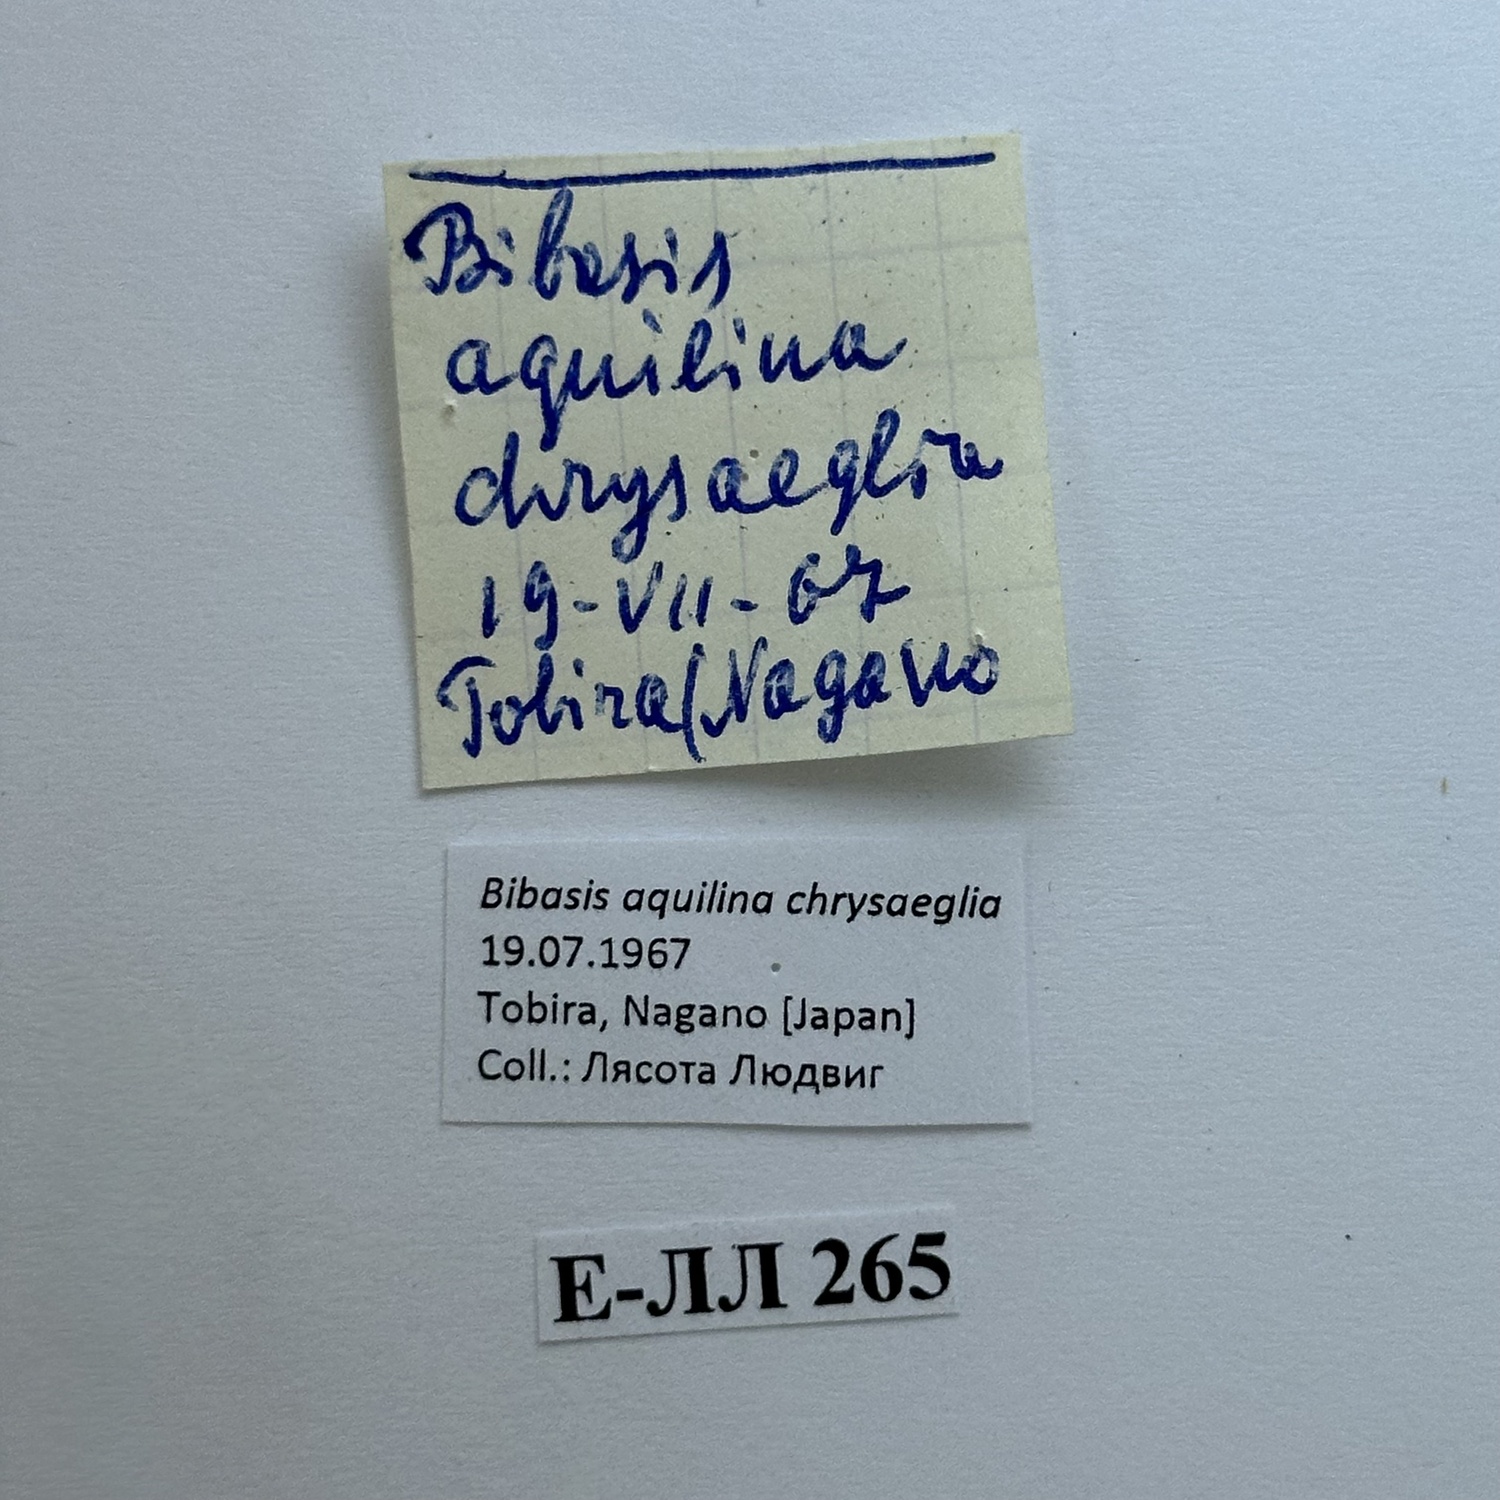 Bibasis
aquilina
chrysaeglia
19-VII-67
Tobira(Nagano
Bibasis aquilina chrysaeglia
19.07.1967
Tobira, Nagano [Japan]
Coll.: Лясота Людвиг
Е-ЛЛ 265